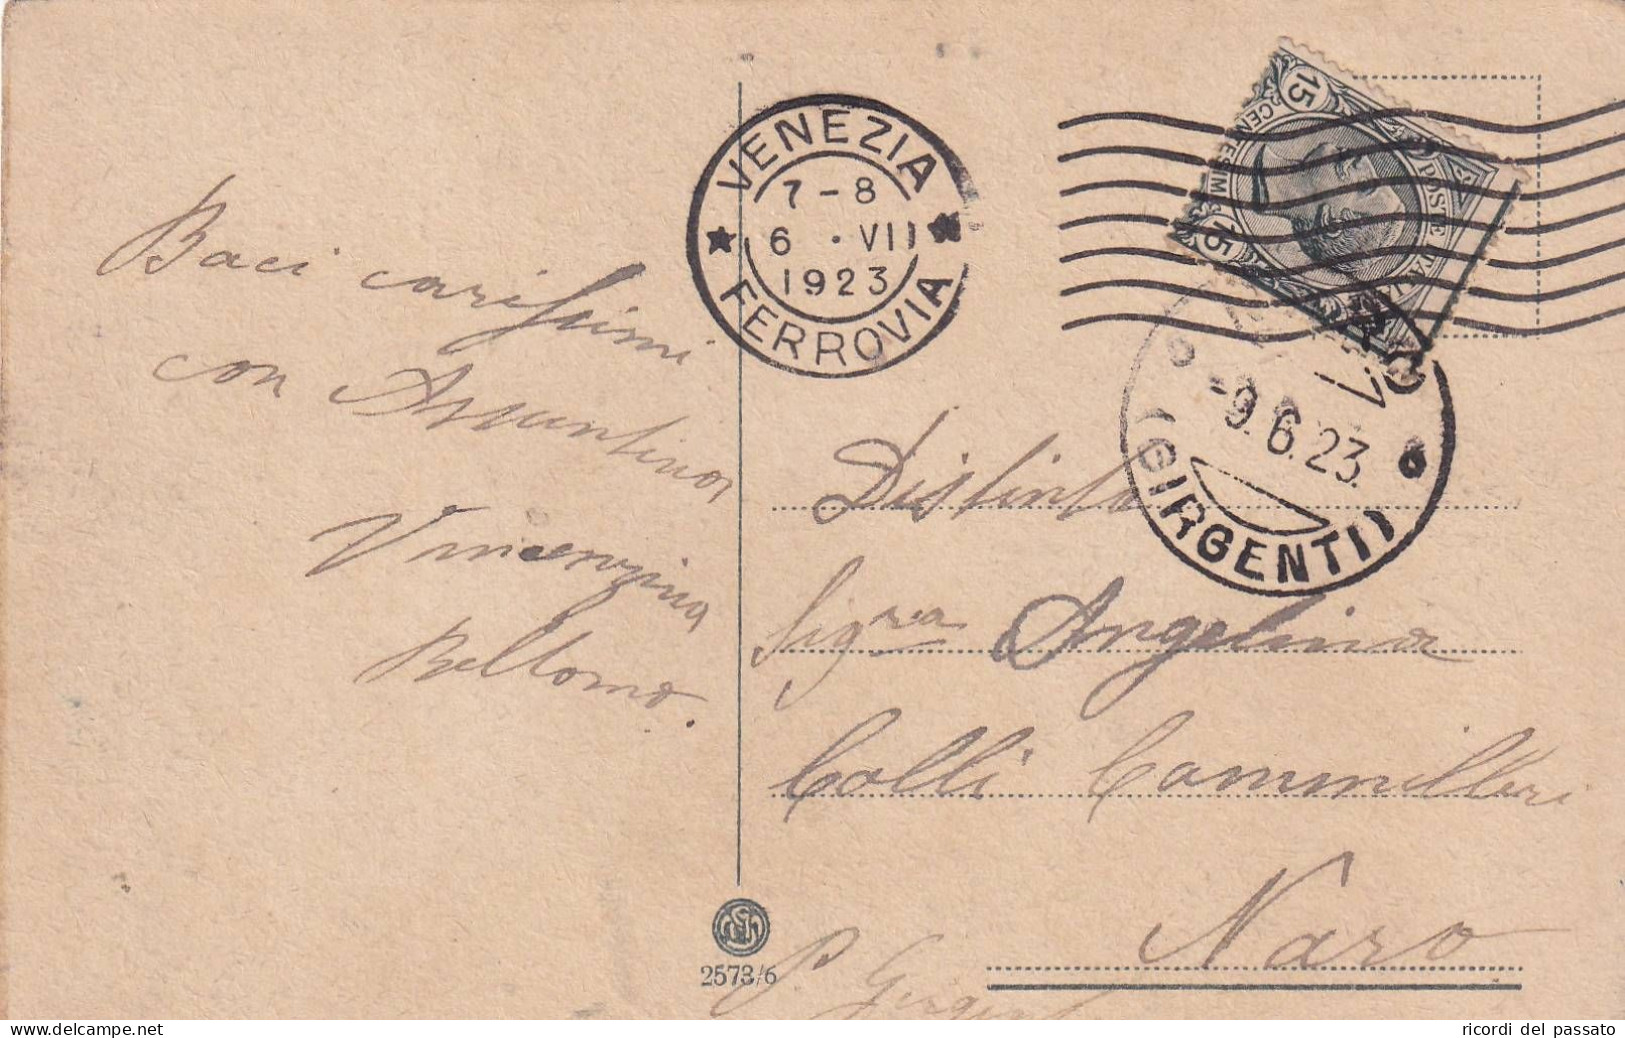 Baci carissimi
con Assuntina
Vincenzina
Bellomo.
VENEZIA
7-8
6 . VII
1923
FERROVIA
15
CENTESIMI
15
POSTE ITALIANE
NARO
-9.6.23.
(GIRGENTI)
Distinta
Sig.ra Angelina
Colli Cammilleri
Naro
P. Girgenti
2573/6
ricordi del passato